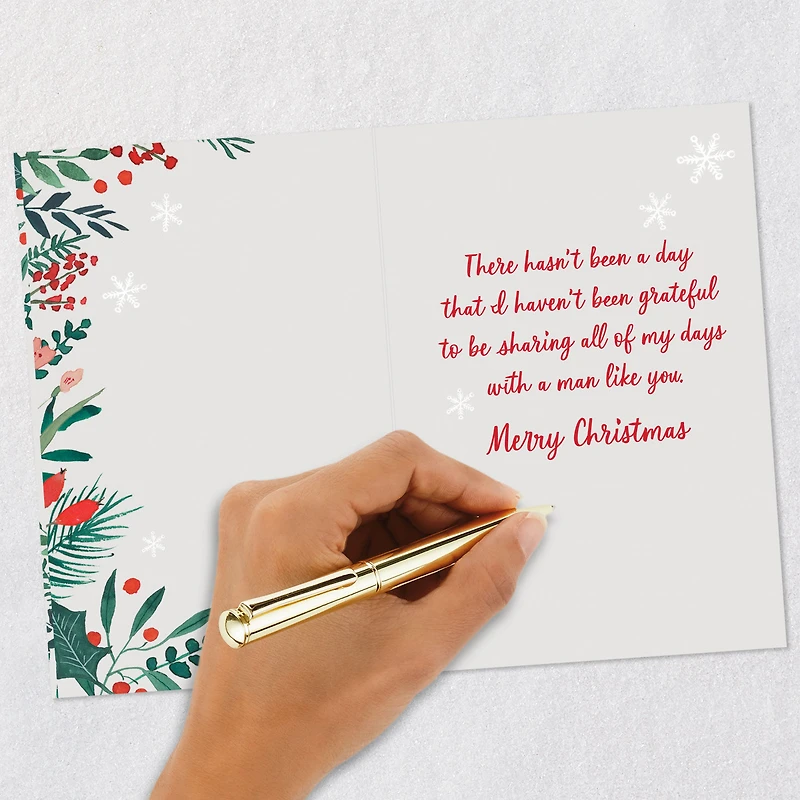 There hasn't been a day
that I haven't been grateful
to be sharing all of my days
with a man like you.
Merry Christmas